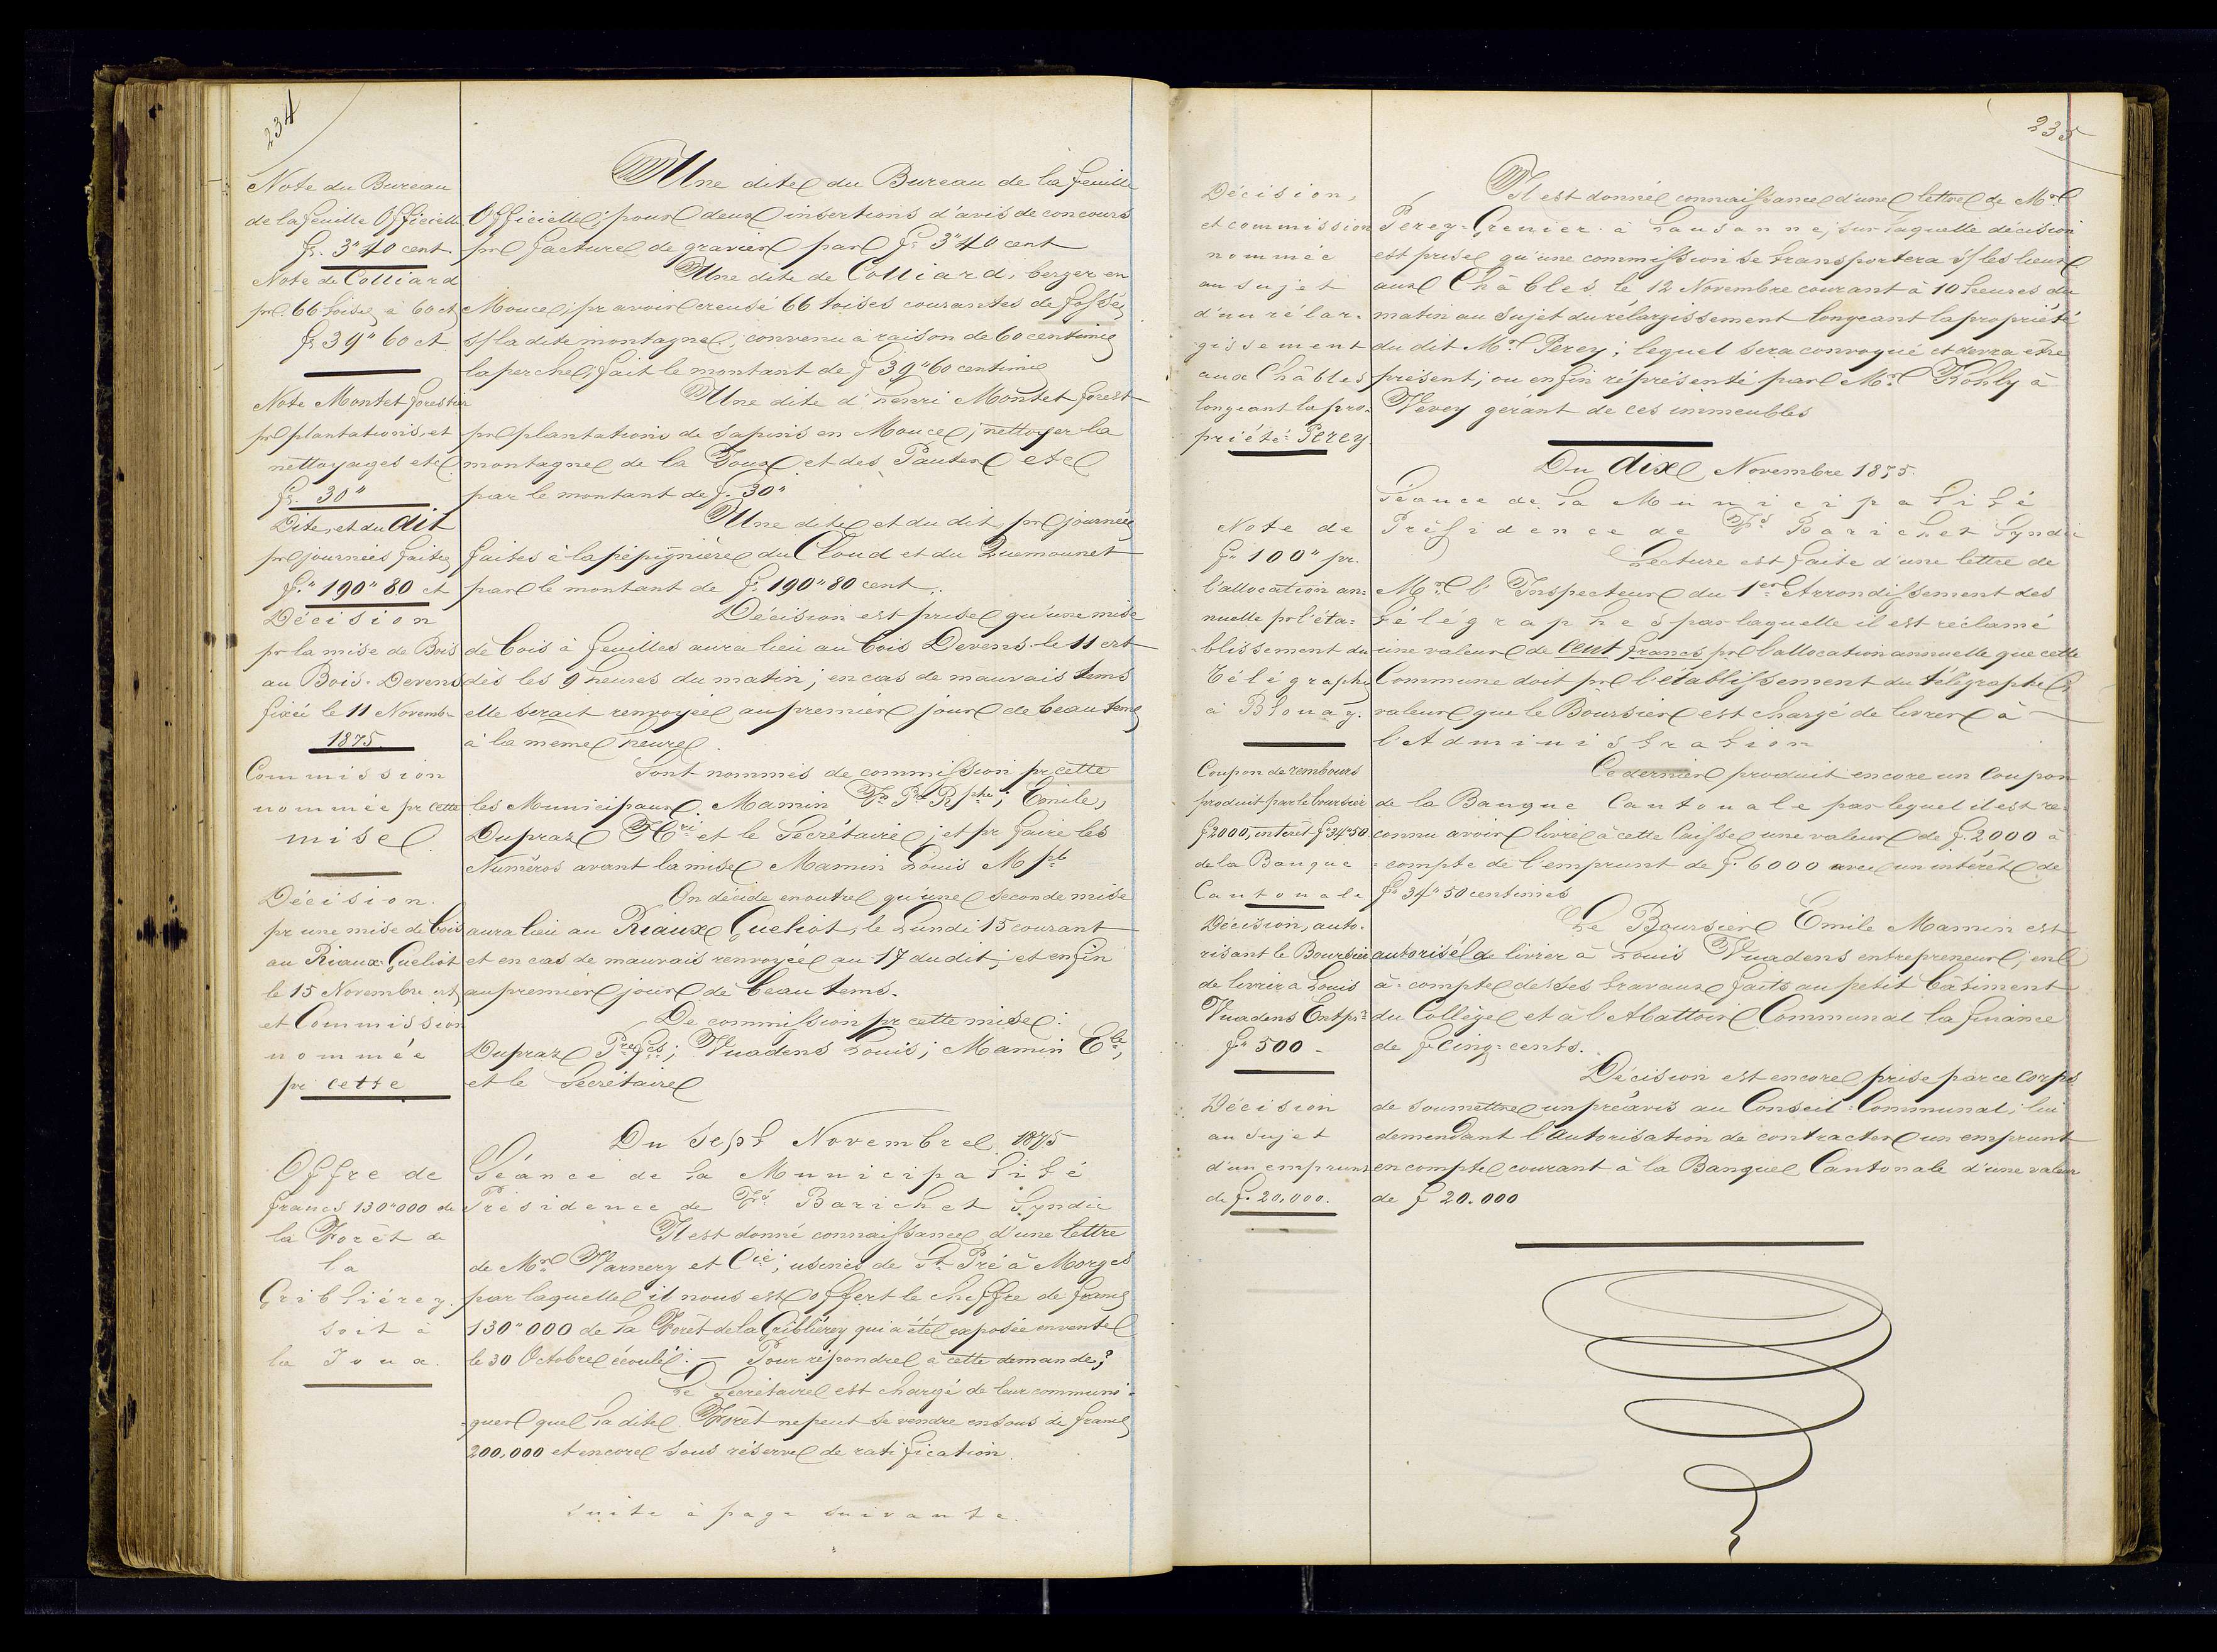 234
Note du Bureau
de la feuille Officielle
fr. 3"40 cent
Note de Colliard
pr. 66 toises à 60 ct
fr 39"60 ct
Note Montet forestier
pr plantations, et
nettoyages etc
fr. 30"
Dite, et du dit
pr journées faites
fr." 190"80 ct
Décision
pr la mise de Bois
au Bois-Devens
fixée le 11 Novembr
1875.
Commission
nommée pr cette
mise.
Décision.
pr une mise de bois
au Riaux Gueliot
le 15 Novembre crt
et Commission
nommée
pr cette
Offre de
francs 130"000 de
la Forêt de
la
Gribliérez.
soit à
la Joux.
Une dite du Bureau de la feuille
Officielle; pour deux insertions d'avis de concours
pr facture de gravier par fr 3"40 cent
Une dite de Colliard, berger en
Mouce; pr avoir creusé 66 toises courantes de fossés
s/ la dite montagne; convenu à raison de 60 centimes
la perche, fait le montant de f 39"60 centimes
Une dite d'henri Montet forest
pr plantations de sapins en Mouce; nettoyer la
montagne de la Joux et des Pautex etc
par le montant de f. 30"
Une dite et du dit pr journées
faites à la pépignière du Cloud et du Quemounet
par le montant de fr 190"80 cent.
Décision est prise qu'une mise
de bois à feuilles aura lieu au bois Devens le 11 crt
dès les 9 heures du matin; en cas de mauvais tems
elle serait renvoyée au premier jour de beau tems
à la meme heure.
Sont nommés de commission pr cette
les Municipaux Mamin Fs Pre Rphe; Emile,
Dupraz Hri et le Secrétaire; et pr faire les
Numéros avant la mise Mamin Louis M pl
On décide en outre qu'une seconde mise
aura lieu au Riaux Gueliot, le Lundi 15 courant
et en cas de mauvais renvoyée au 17 du dit; et enfin
au premier jour de beau tems.
De commission pr cette mise:
Dupraz Pre fcs; Vuadens Louis; Mamin Ele,
et le Secrétaire
Du Sept Novembre 1875
Séance de la Municipalité
Présidence de Fd Barichet Syndic
Il est donné connaissance d'une lettre
de Mr Warnery et Cie; usines de St Pré à Morges
par laquelle il nous est offert le cheffre de francs
130"000 de la Forêt de la Gribliérez qui a été exposée en vente
le 30 Octobre écoulé. – Pour répondre à cette demande,?
Le Secrétaire est chargé de leur communi-
-quer que la dite Forêt ne peut se vendre en sous de francs
200,000 et encore sous réserve de ratification.
suite à page suivante.
235
Décision,
et commission
nommée
au sujet
d'un rélar-
gissement
aux Châbles
longeant la pro-
priété Perey
Note de
fr 100" pr.
l'allocation an-
nuelle pr l'éta-
-blissement du
Télégraphe
à Blonay.
Coupon de rembours
produit par le boursier
f 2000, intérêt fr 34"50
de la Banque
Cantonale
Décision, auto-
risant le Boursier
de livrer à Louis
Vuadens Entpr
fr 500 –
Décision
au sujet
d'un emprunt
de f. 20,000.
Il est donné connaissance d'une lettre de Mr
Perey-Grenier à Lausanne, sur laquelle décision
est prise qu'une commission se transportera s/ les lieux
aux Châbles le 12 Novembre courant à 10 heures du
matin au sujet du rélargissement longeant la propriété
du dit Mr Perey; lequel sera convoqué et devra être
présent; ou enfin réprésenté par Mr Kohly à
Vevey gérant de ces immeubles
Du dix Novembre 1875.
Séance de la Municipalité
Présidence de Fd Barichet Syndic
Lecture est faite d'une lettre de
Mr l'Inspecteur du 1er Arrondissement des
télégraphes par laquelle il est réclamé
une valeur de cent francs pr l'allocation annuelle que cette
Commune doit pr l'établissement du télégraphe
valeur que le Boursier est chargé de livrer à
l'Administration
Ce dernier produit encore un Coupon
de la Banque Cantonale par lequel il est re-
connu avoir livré à cette Caisse une valeur de f. 2000 à
-compte de l'emprunt de fr 6000 avec un intérêt de
fr 34"50 centimes
Le Boursier Emile Mamin est
autorisé de livrer à Louis Vuadens entrepreneur, en
à-compte de ses travaux faits au petit bâtiment
du Collège et à l'Abattoir Communal la finance
de fr cinq-cents.
Décision est encore prise par ce Corps
de soumettre un préavis au Conseil-Communal; lui
demendant l'autorisation de contracter un emprunt
en compte courant à la Banque Cantonale d'une valeur
de f 20.000